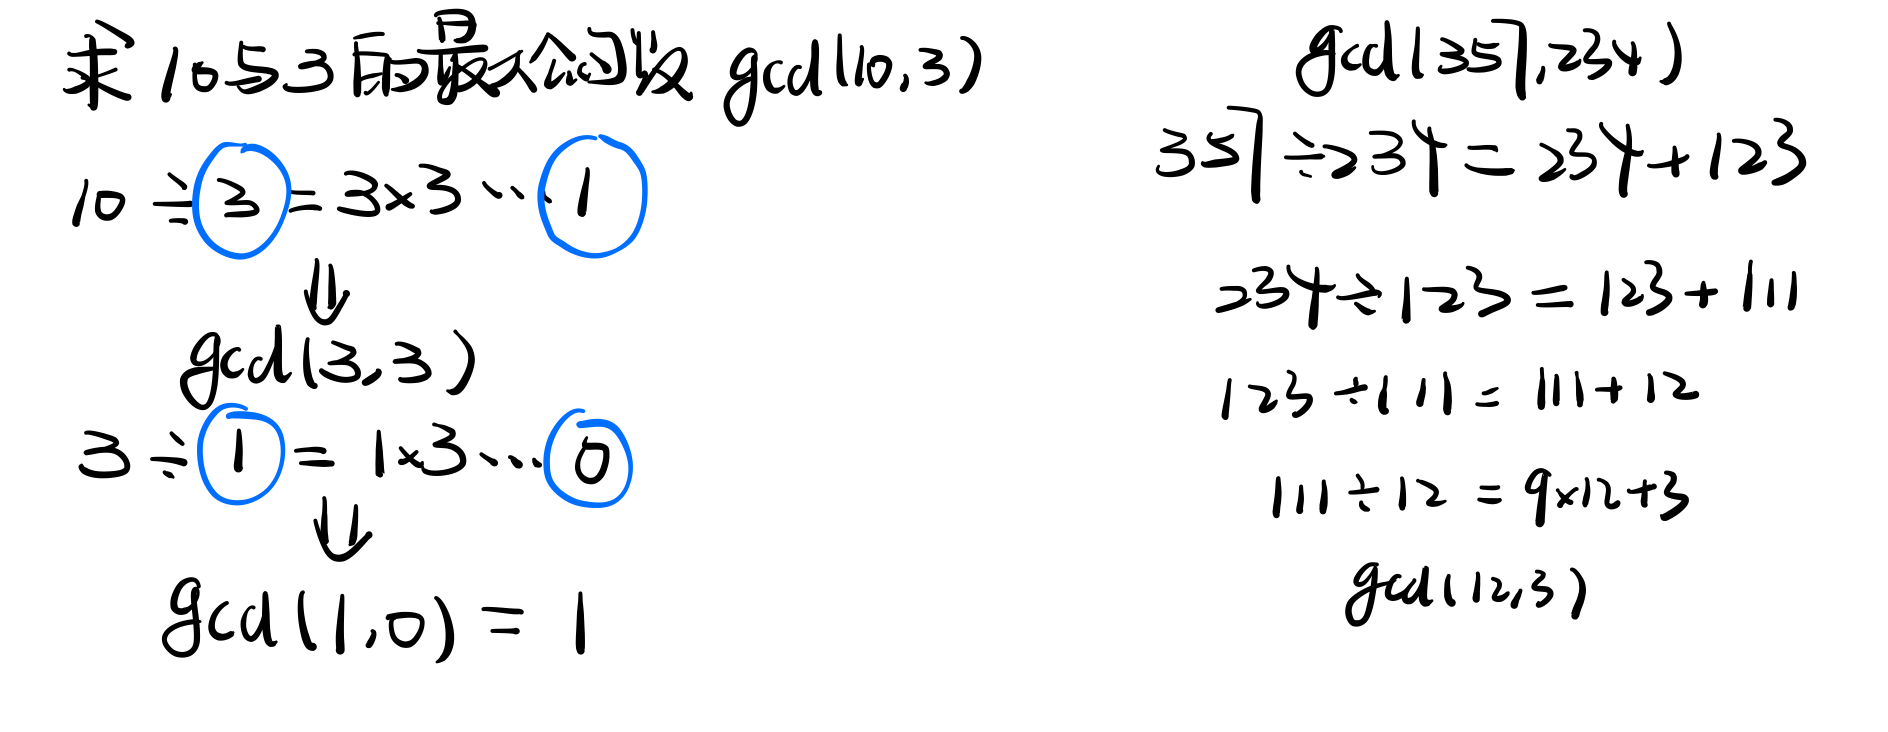 求10与3的最大公约数 gcd(10,3)
10÷3=3×3…1
⇓
gcd(3,3)
3÷1=1×3…0
⇓
gcd(1,0)=1
gcd(357,234)
357÷234=234+123
234÷123=123+111
123÷111=111+12
111÷12=9×12+3
gcd(12,3)